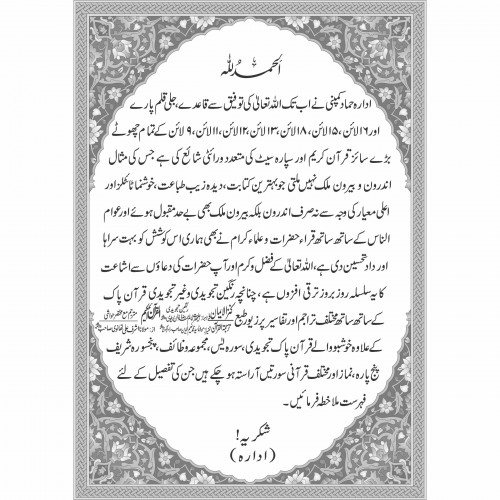 الحمد للہ
ادارہ حماد کمپنی نے اب تک اللہ تعالیٰ کی توفیق سے قاعدے، جلی قلم پارے
اور ۱۶ لائن، ۱۵ لائن، ۱۸ لائن، ۱۳ لائن، ۱۲ لائن، ۱۱ لائن، ۹ لائن کے تمام چھوٹے
بڑے سائز قرآن کریم اور سپارہ سیٹ کی متعدد ورائٹی شائع کی ہے جس کی مثال
اندرون و بیرون ملک نہیں ملتی جو بہترین کتابت، دیدہ زیب طباعت، خوشنما ٹائٹلز اور
اعلیٰ معیار کی وجہ سے نہ صرف اندرون بلکہ بیرون ملک بھی بے حد مقبول ہوئے اور عوام
الناس کے ساتھ ساتھ قراء حضرات و علماء کرام نے بھی ہماری اس کوشش کو بہت سراہا
اور داد تحسین دی ہے، اللہ تعالیٰ کے فضل و کرم اور آپ حضرات کی دعاؤں سے اشاعت
کا یہ سلسلہ روز بروز ترقی افزوں ہے، چنانچہ رنگین تجویدی و غیر تجویدی قرآن پاک
کے ساتھ ساتھ مختلف تراجم اور تفاسیر پر زیور طبع کنزالایمان القرآن الحکیم
کے علاوہ خوشبو والے قرآن پاک تجویدی، سورہ یٰس، مجموعہ وظائف، پنجسورہ شریف
پنج پارہ، نماز اور مختلف قرآنی سورتیں آراستہ ہو چکے ہیں جن کی تفصیل کے لئے
فہرست ملاحظہ فرمائیں۔
شکریہ!
(ادارہ)